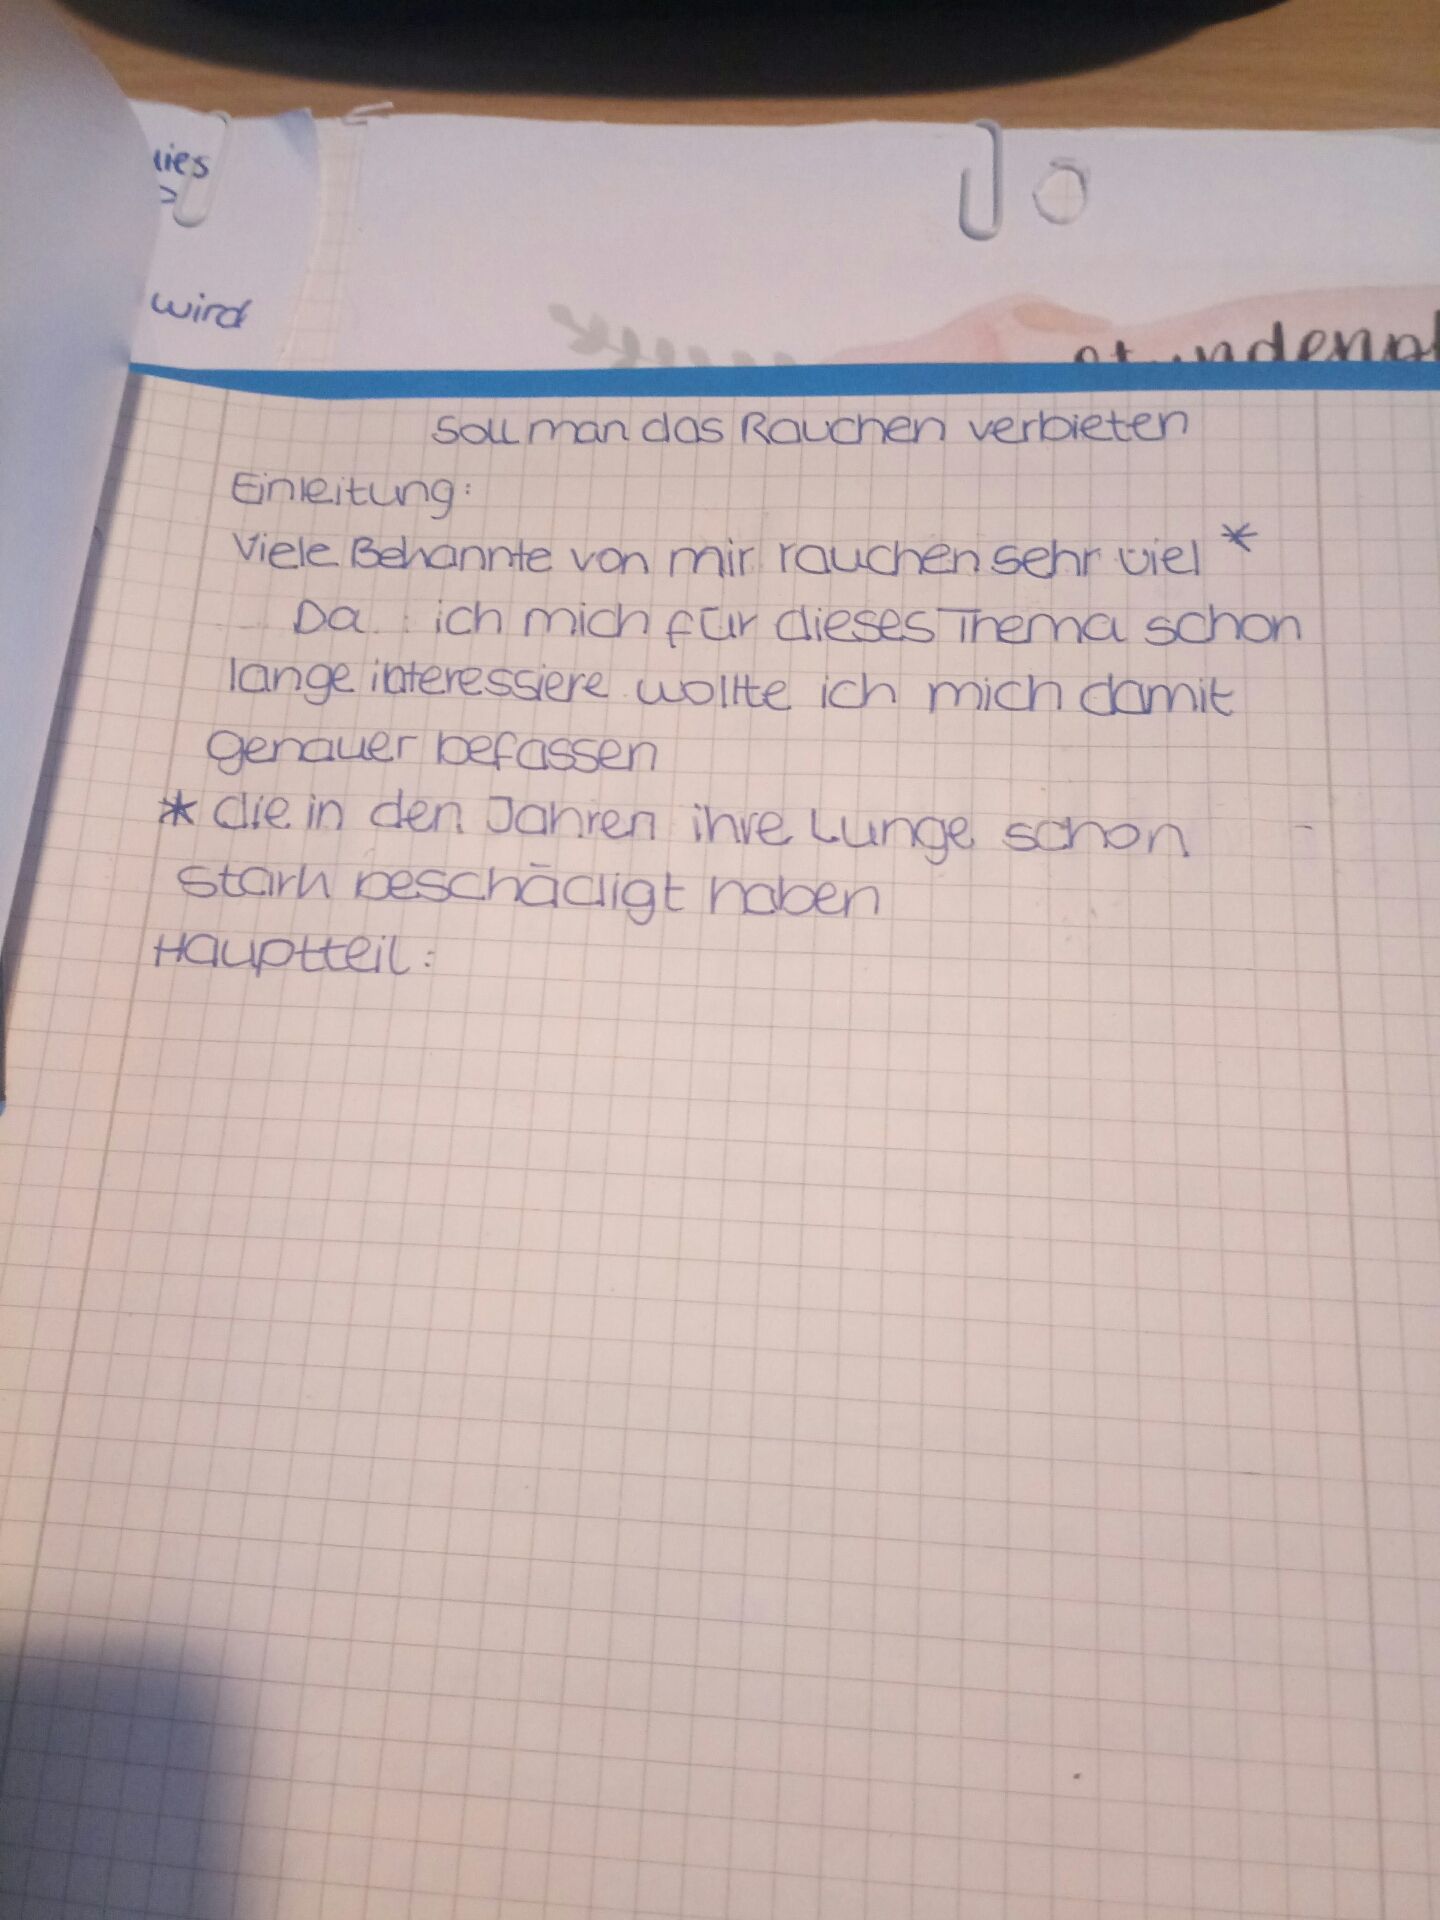 wird
Soll man das Rauchen verbieten
Einleitung:
Viele Bekannte von mir rauchen sehr viel *
Da ich mich für dieses Thema schon
lange interessiere wollte ich mich damit
genauer befassen
* die in den Jahren ihre Lunge schon
stark beschädigt haben
Hauptteil: